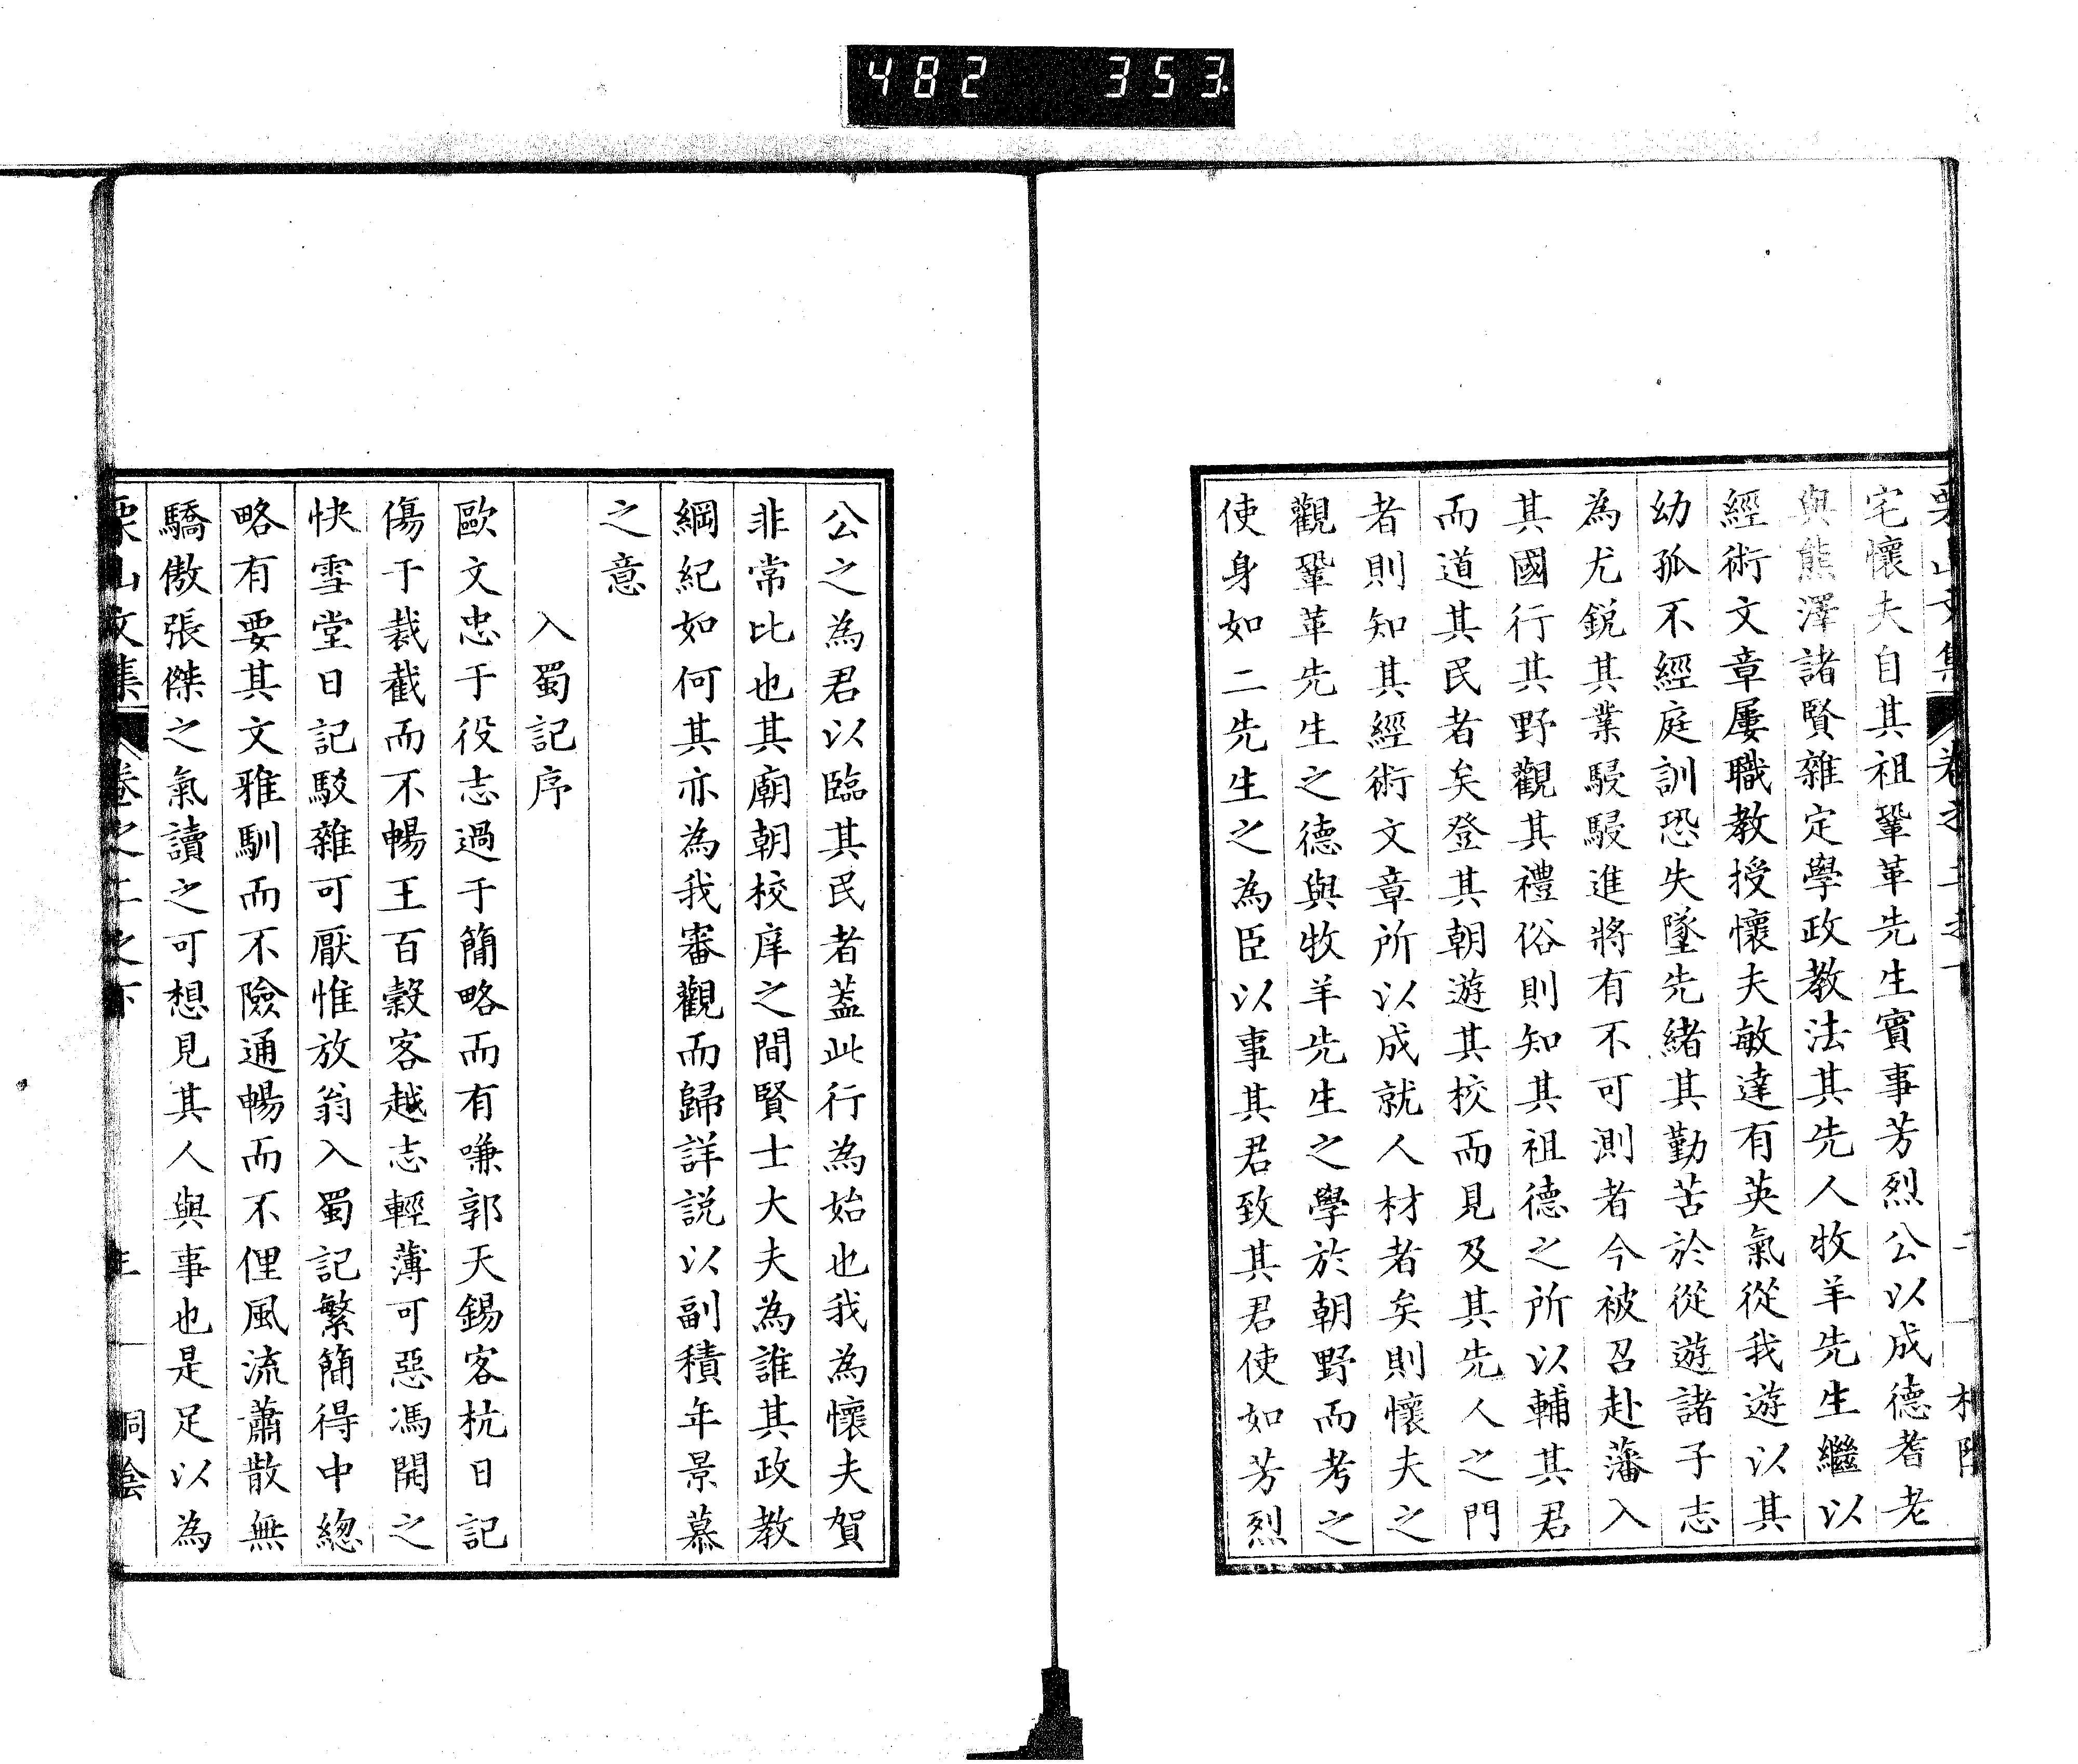 482 353
宅懷夫自其祖鞏革先生賓事芳烈公以成德耆老
與熊澤諸賢雜定學政教法其先人牧羊先生繼以
經術文章屢職教授懷夫敏達有英氣從我遊以其
幼孤不經庭訓恐失墜先緒其勤苦於從遊諸子志
為尤銳其業駸駸進將有不可測者今被召赴藩入
其國行其野觀其禮俗則知其祖德之所以輔其君
而道其民者矣登其朝遊其校而見及其先人之門
者則知其經術文章所以成就人材者矣則懷夫之
觀鞏革先生之德與牧羊先生之學於朝野而考之
使身如二先生之為臣以事其君致其君使如芳烈
公之為君以臨其民者葢此行為始也我為懷夫賀
非常比也其廟朝校庠之間賢士大夫為誰其政教
綱紀如何其亦為我審觀而歸詳説以副積年景慕
之意
入蜀記序
歐文忠于役志過于簡略而有嗛郭天錫客杭日記
傷于裁截而不暢王百穀客越志輕薄可惡馮開之
快雪堂日記駁雜可厭惟放翁入蜀記繁簡得中緫
略有要其文雅馴而不險通暢而不俚風流蕭散無
驕傲張傑之氣讀之可想見其人與事也是足以為
栗山文集 卷之二之下 三 桐陰